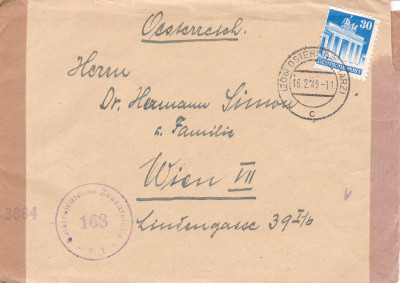 Oesterreich.
30
DEUTSCHE POST
(20b) OSTERODE (HARZ)
16.2.49.-11
c
Herrn
Dr. Hermann Simon
u. Familie
Wien VII
Lindengasse 39 I/6
3064
Österreichische Zensurstelle
168